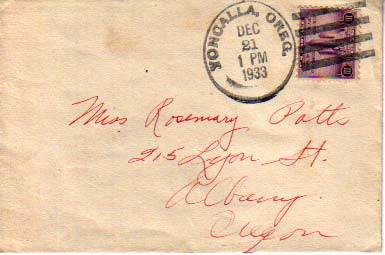 YONCALLA, OREG.
DEC
21
1 PM
1933
Miss Rosemary Potts
215 Lyon St.
Albany
Oregon